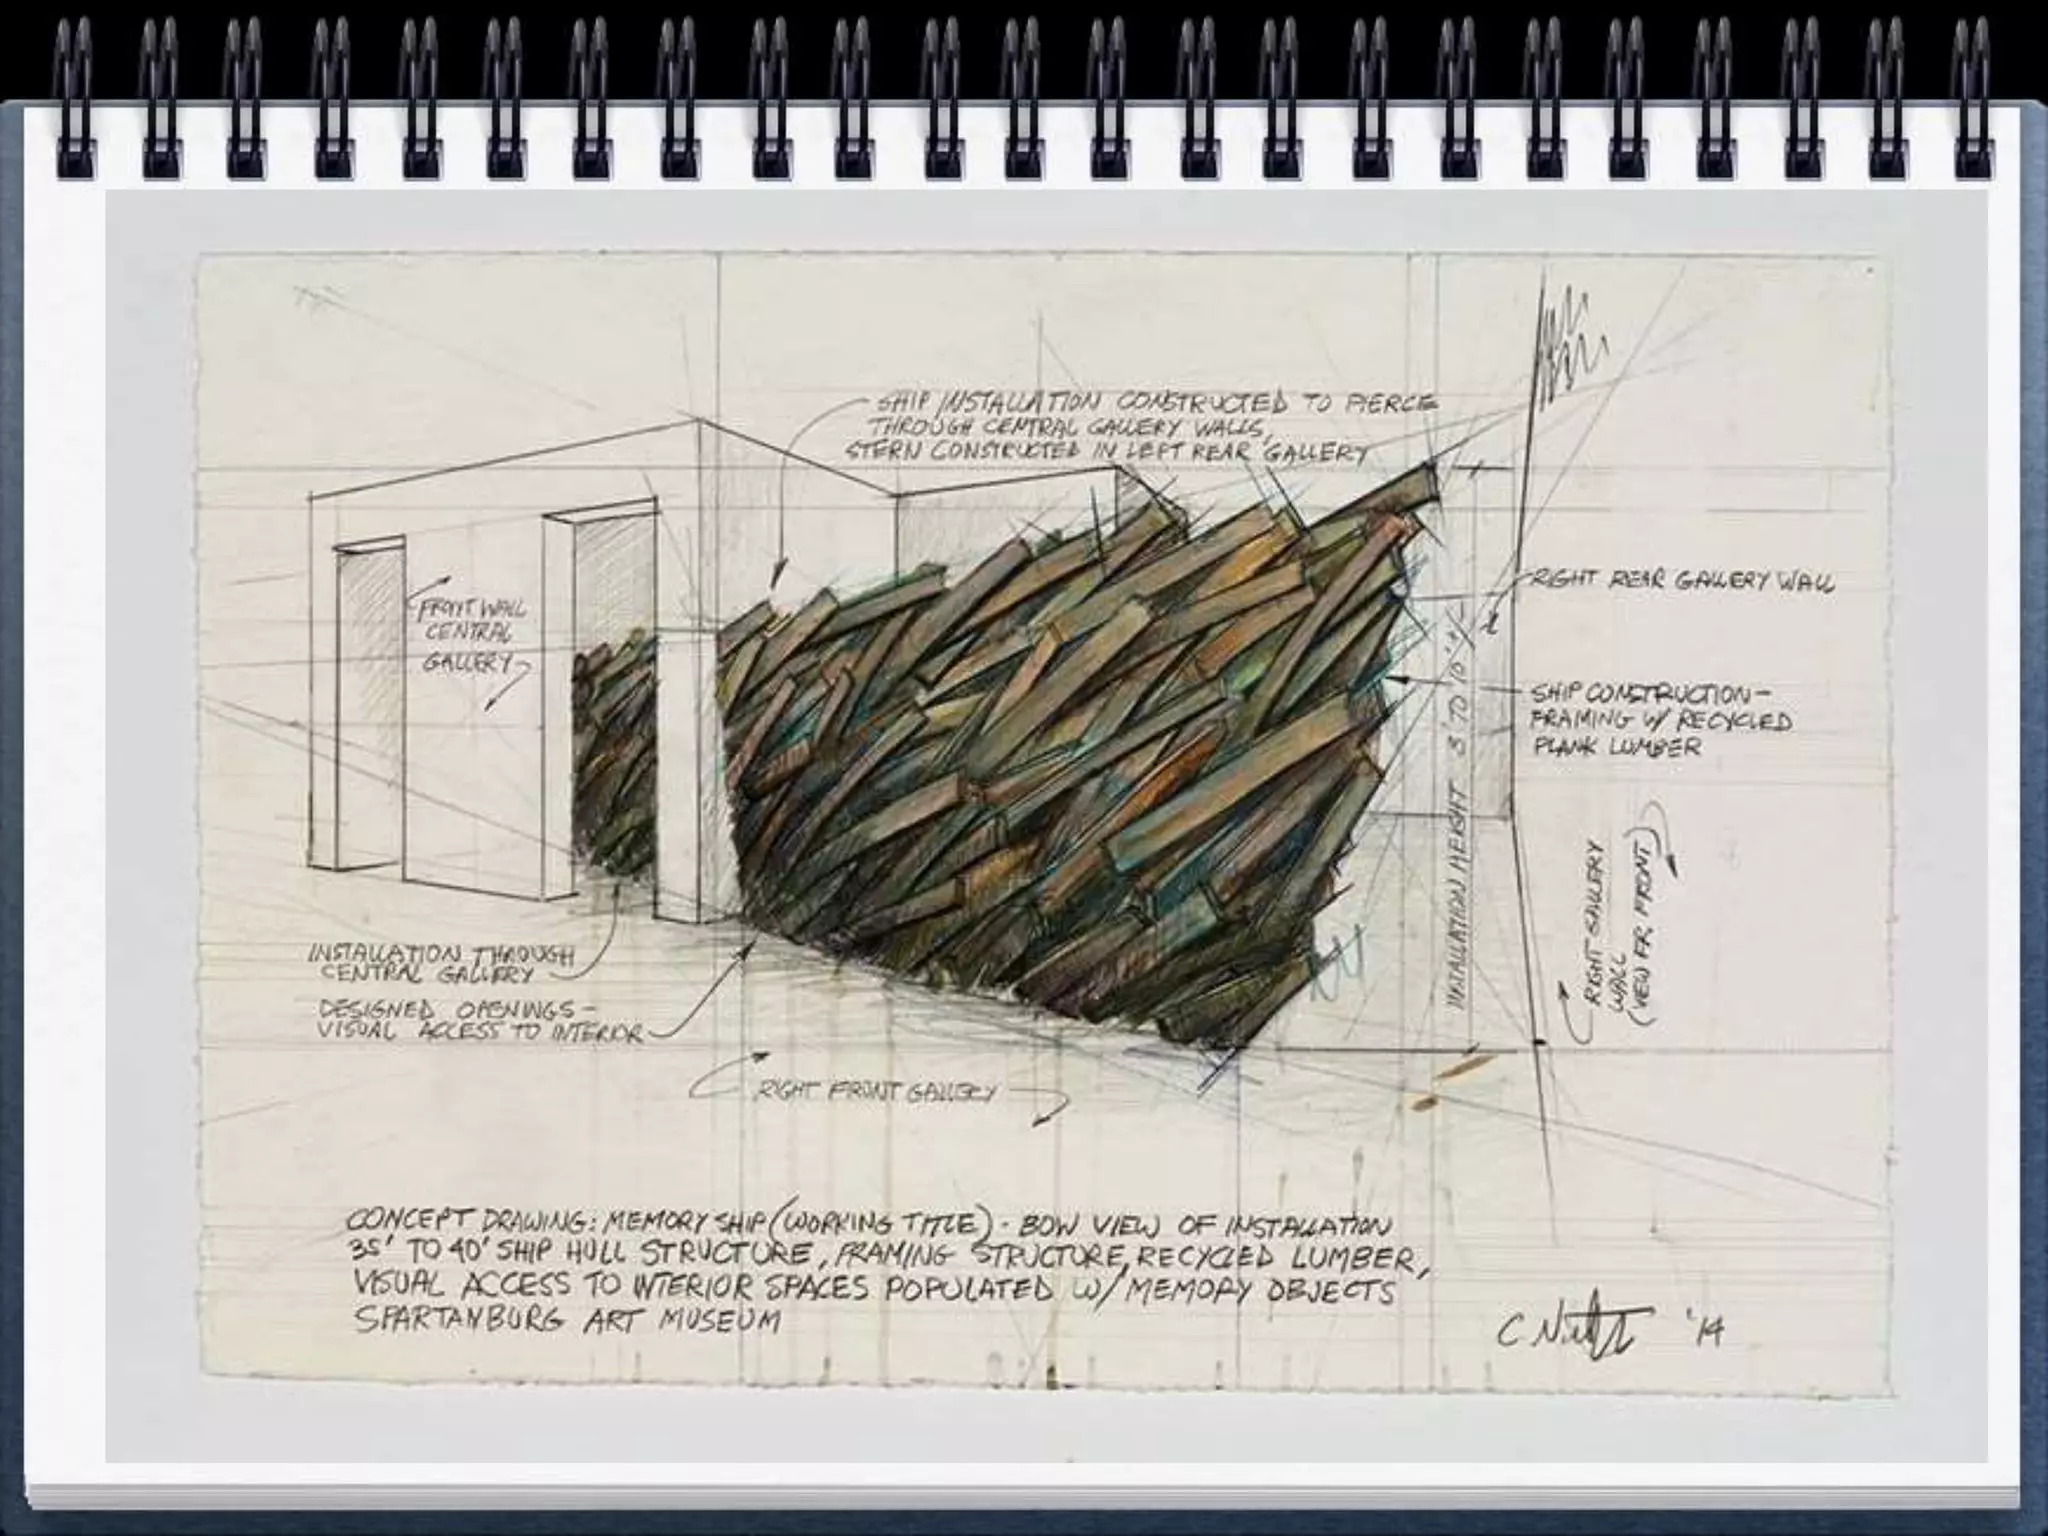 SHIP INSTALLATION CONSTRUCTED TO PIERCE
THROUGH CENTRAL GALLERY WALLS,
STERN CONSTRUCTED IN LEFT REAR GALLERY
FRONT WALL
CENTRAL
GALLERY
RIGHT REAR GALLERY WALL
SHIP CONSTRUCTION-
FRAMING W/ RECYCLED
PLANK LUMBER
INSTALLATION HEIGHT 8' TO 10' +/-
RIGHT GALLERY
WALL
(VIEW FR. FRONT)
INSTALLATION THROUGH
CENTRAL GALLERY
DESIGNED OPENINGS-
VISUAL ACCESS TO INTERIOR
RIGHT FRONT GALLERY
CONCEPT DRAWING: MEMORY SHIP (WORKING TITLE) - BOW VIEW OF INSTALLATION
35' TO 40' SHIP HULL STRUCTURE, FRAMING STRUCTURE, RECYCLED LUMBER,
VISUAL ACCESS TO INTERIOR SPACES POPULATED W/ MEMORY OBJECTS
SPARTANBURG ART MUSEUM
'14